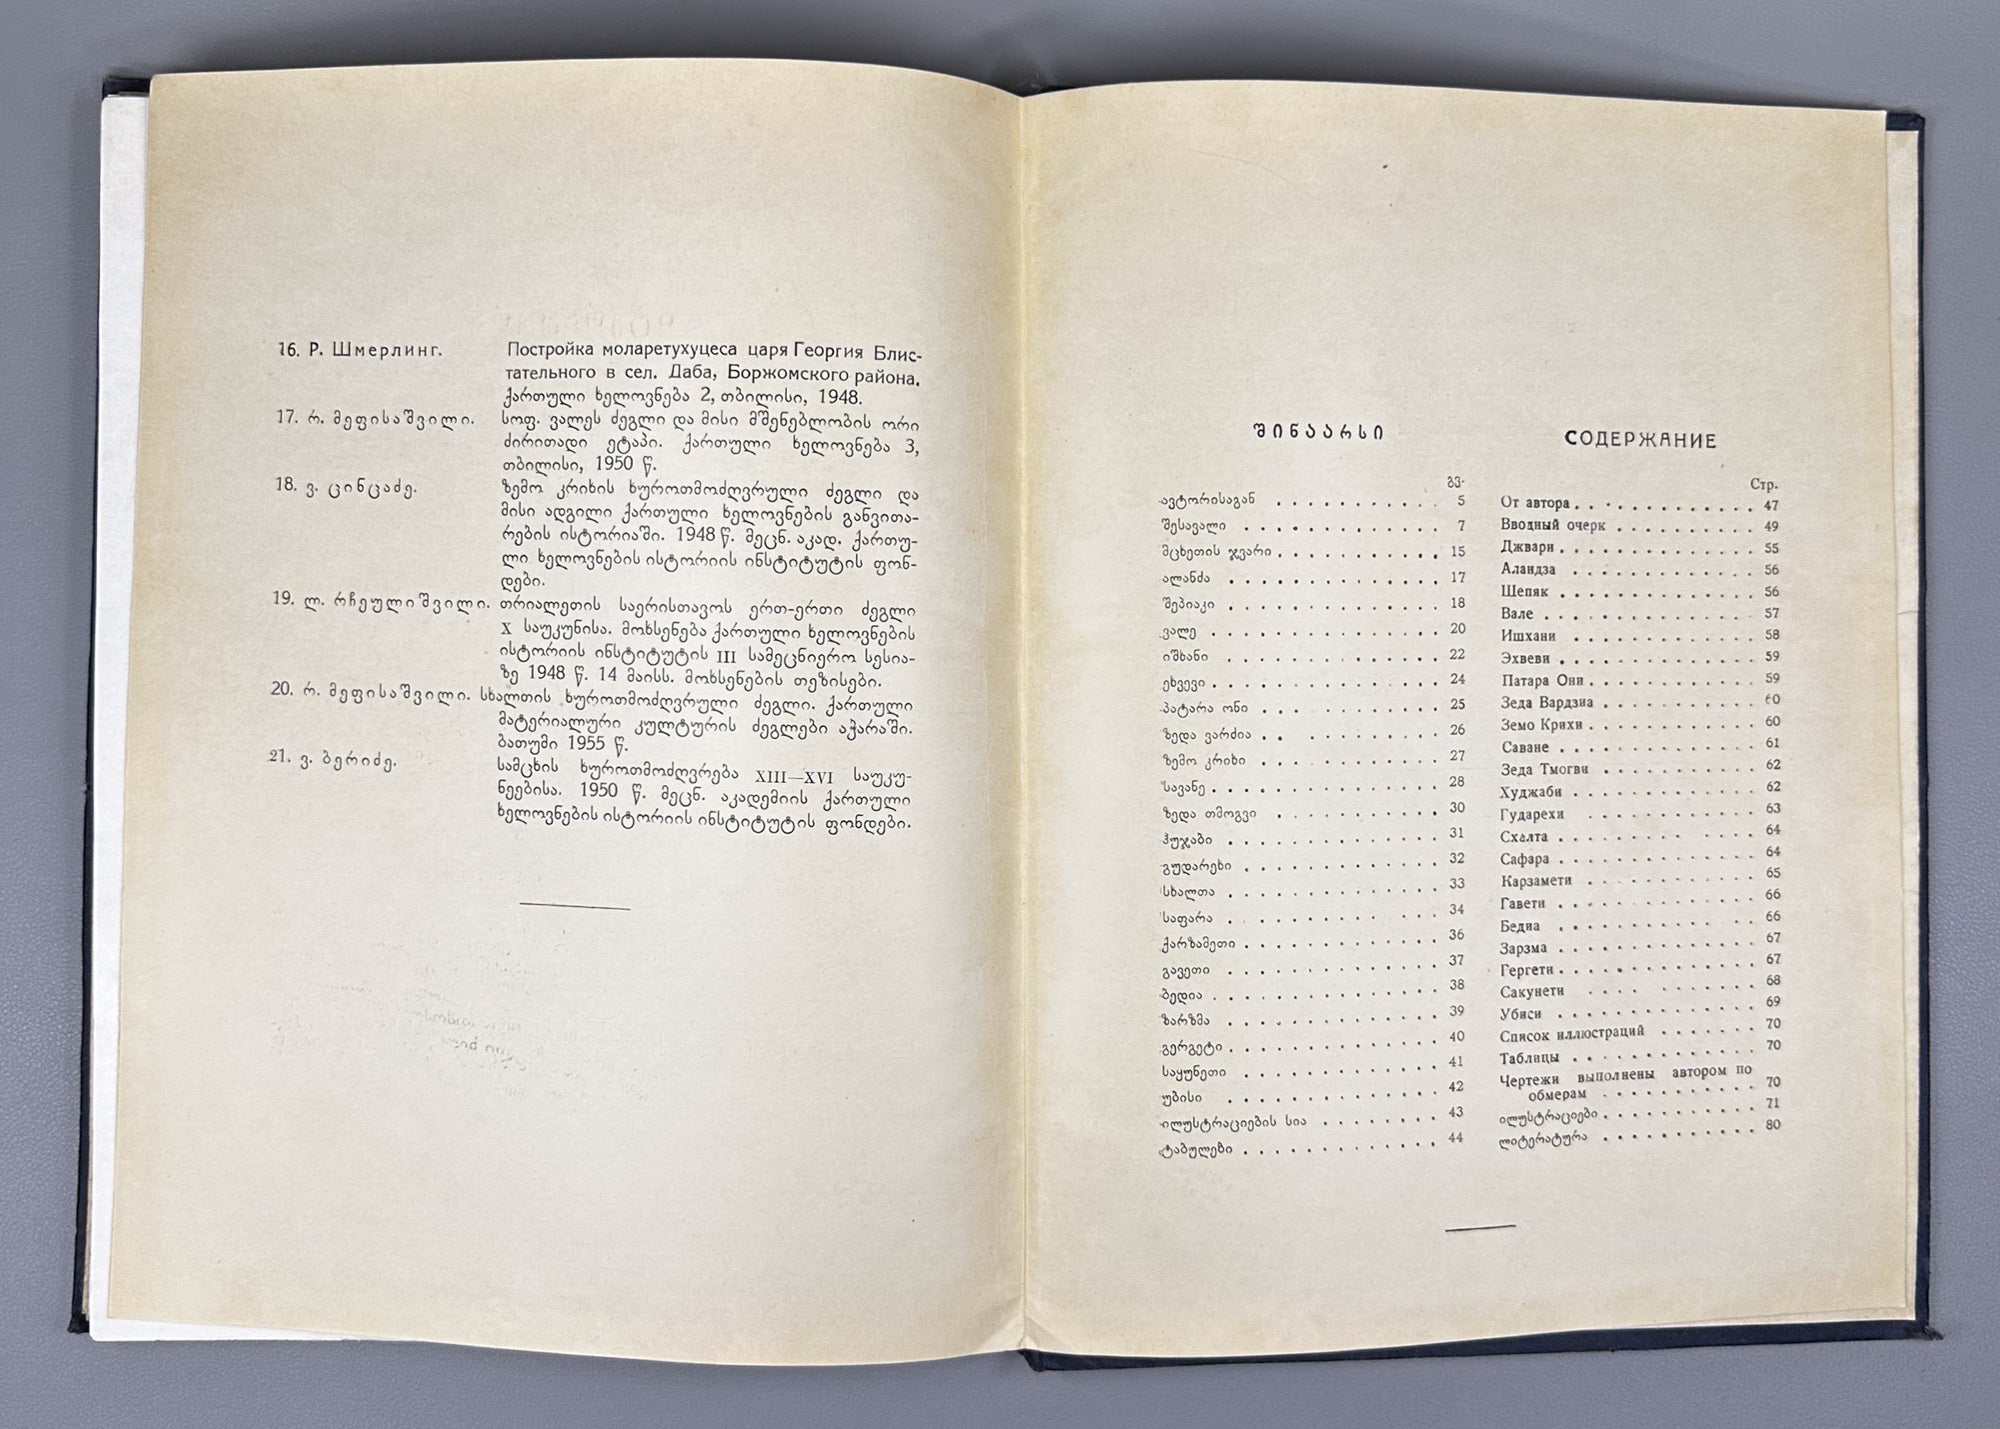 16. Р. Шмерлинг. Постройка моларетухуцеса царя Георгия Блис-
тательного в сел. Даба, Боржомского района.
ქართული ხელოვნება 2, თბილისი, 1948.
17. რ. მეფისაშვილი. სოფ. ვალეს ძეგლი და მისი მშენებლობის ორი
ძირითადი ეტაპი. ქართული ხელოვნება 3,
თბილისი, 1950 წ.
18. ვ. ცინცაძე. ზემო კრიხის ხუროთმოძღვრული ძეგლი და
მისი ადგილი ქართული ხელოვნების განვითა-
რების ისტორიაში. 1948 წ. მეცნ. აკად. ქართუ-
ლი ხელოვნების ისტორიის ინსტიტუტის ფონ-
დები.
19. ლ. რჩეულიშვილი. თრიალეთის საერისთავოს ერთ-ერთი ძეგლი
X საუკუნისა. მოხსენება ქართული ხელოვნების
ისტორიის ინსტიტუტის III სამეცნიერო სესია-
ზე 1948 წ. 14 მაისს. მოხსენების თეზისები.
20. რ. მეფისაშვილი. სხალთის ხუროთმოძღვრული ძეგლი. ქართული
მატერიალური კულტურის ძეგლები აჭარაში.
ბათუმი 1955 წ.
21. ვ. ბერიძე. სამცხის ხუროთმოძღვრება XIII—XVI საუკუ-
ნეებისა. 1950 წ. მეცნ. აკადემიის ქართული
ხელოვნების ისტორიის ინსტიტუტის ფონდები.
შინაარსი
გვ.
ავტორისაგან . . . . . . . . . . 5
შესავალი . . . . . . . . . . . 7
მცხეთის ჯვარი . . . . . . . . . . 15
ალანძა . . . . . . . . . . . . 17
შეპიაკი . . . . . . . . . . . . 18
ვალე . . . . . . . . . . . . . 20
იშხანი . . . . . . . . . . . . 22
ეხვევი . . . . . . . . . . . . . 24
პატარა ონი . . . . . . . . . . . 25
ზედა ვარძია . . . . . . . . . . . 26
ზემო კრიხი . . . . . . . . . . . 27
სავანე . . . . . . . . . . . . . 28
ზედა თმოგვი . . . . . . . . . . 30
ჰუჯაბი . . . . . . . . . . . . 31
გუდარეხი . . . . . . . . . . . 32
სხალთა . . . . . . . . . . . . 33
საფარა . . . . . . . . . . . . 34
ქარზამეთი . . . . . . . . . . . 36
გავეთი . . . . . . . . . . . . 37
ბედია . . . . . . . . . . . . . 38
ზარზმა . . . . . . . . . . . . 39
გერგეტი . . . . . . . . . . . . 40
საყუნეთი . . . . . . . . . . . 41
უბისი . . . . . . . . . . . . 42
ილუსტრაციების სია . . . . . . . 43
ტაბულები . . . . . . . . . . . 44
СОДЕРЖАНИЕ
Стр.
От автора . . . . . . . . . . . 47
Вводный очерк . . . . . . . . . 49
Джвари . . . . . . . . . . . . 55
Аландза . . . . . . . . . . . 56
Шепяк . . . . . . . . . . . . 56
Вале . . . . . . . . . . . . . 57
Ишхани . . . . . . . . . . . 58
Эхвеви . . . . . . . . . . . . 59
Патара Они . . . . . . . . . . 59
Зеда Вардзиа . . . . . . . . . 60
Земо Крихи . . . . . . . . . . 60
Саване . . . . . . . . . . . . 61
Зеда Тмогви . . . . . . . . . 62
Худжаби . . . . . . . . . . . 62
Гударехи . . . . . . . . . . 63
Схалта . . . . . . . . . . . . 64
Сафара . . . . . . . . . . . . 64
Карзамети . . . . . . . . . . 65
Гавети . . . . . . . . . . . . 66
Бедиа . . . . . . . . . . . . 66
Зарзма . . . . . . . . . . . . 67
Гергети . . . . . . . . . . . . 67
Сакунети . . . . . . . . . . 68
Убиси . . . . . . . . . . . . 69
Список иллюстраций . . . . . . 70
Таблицы . . . . . . . . . . . 70
Чертежи выполнены автором по
обмерам . . . . . . . . . . 70
ილუსტრაციები . . . . . . . . . 71
ლიტერატურა . . . . . . . . . 80